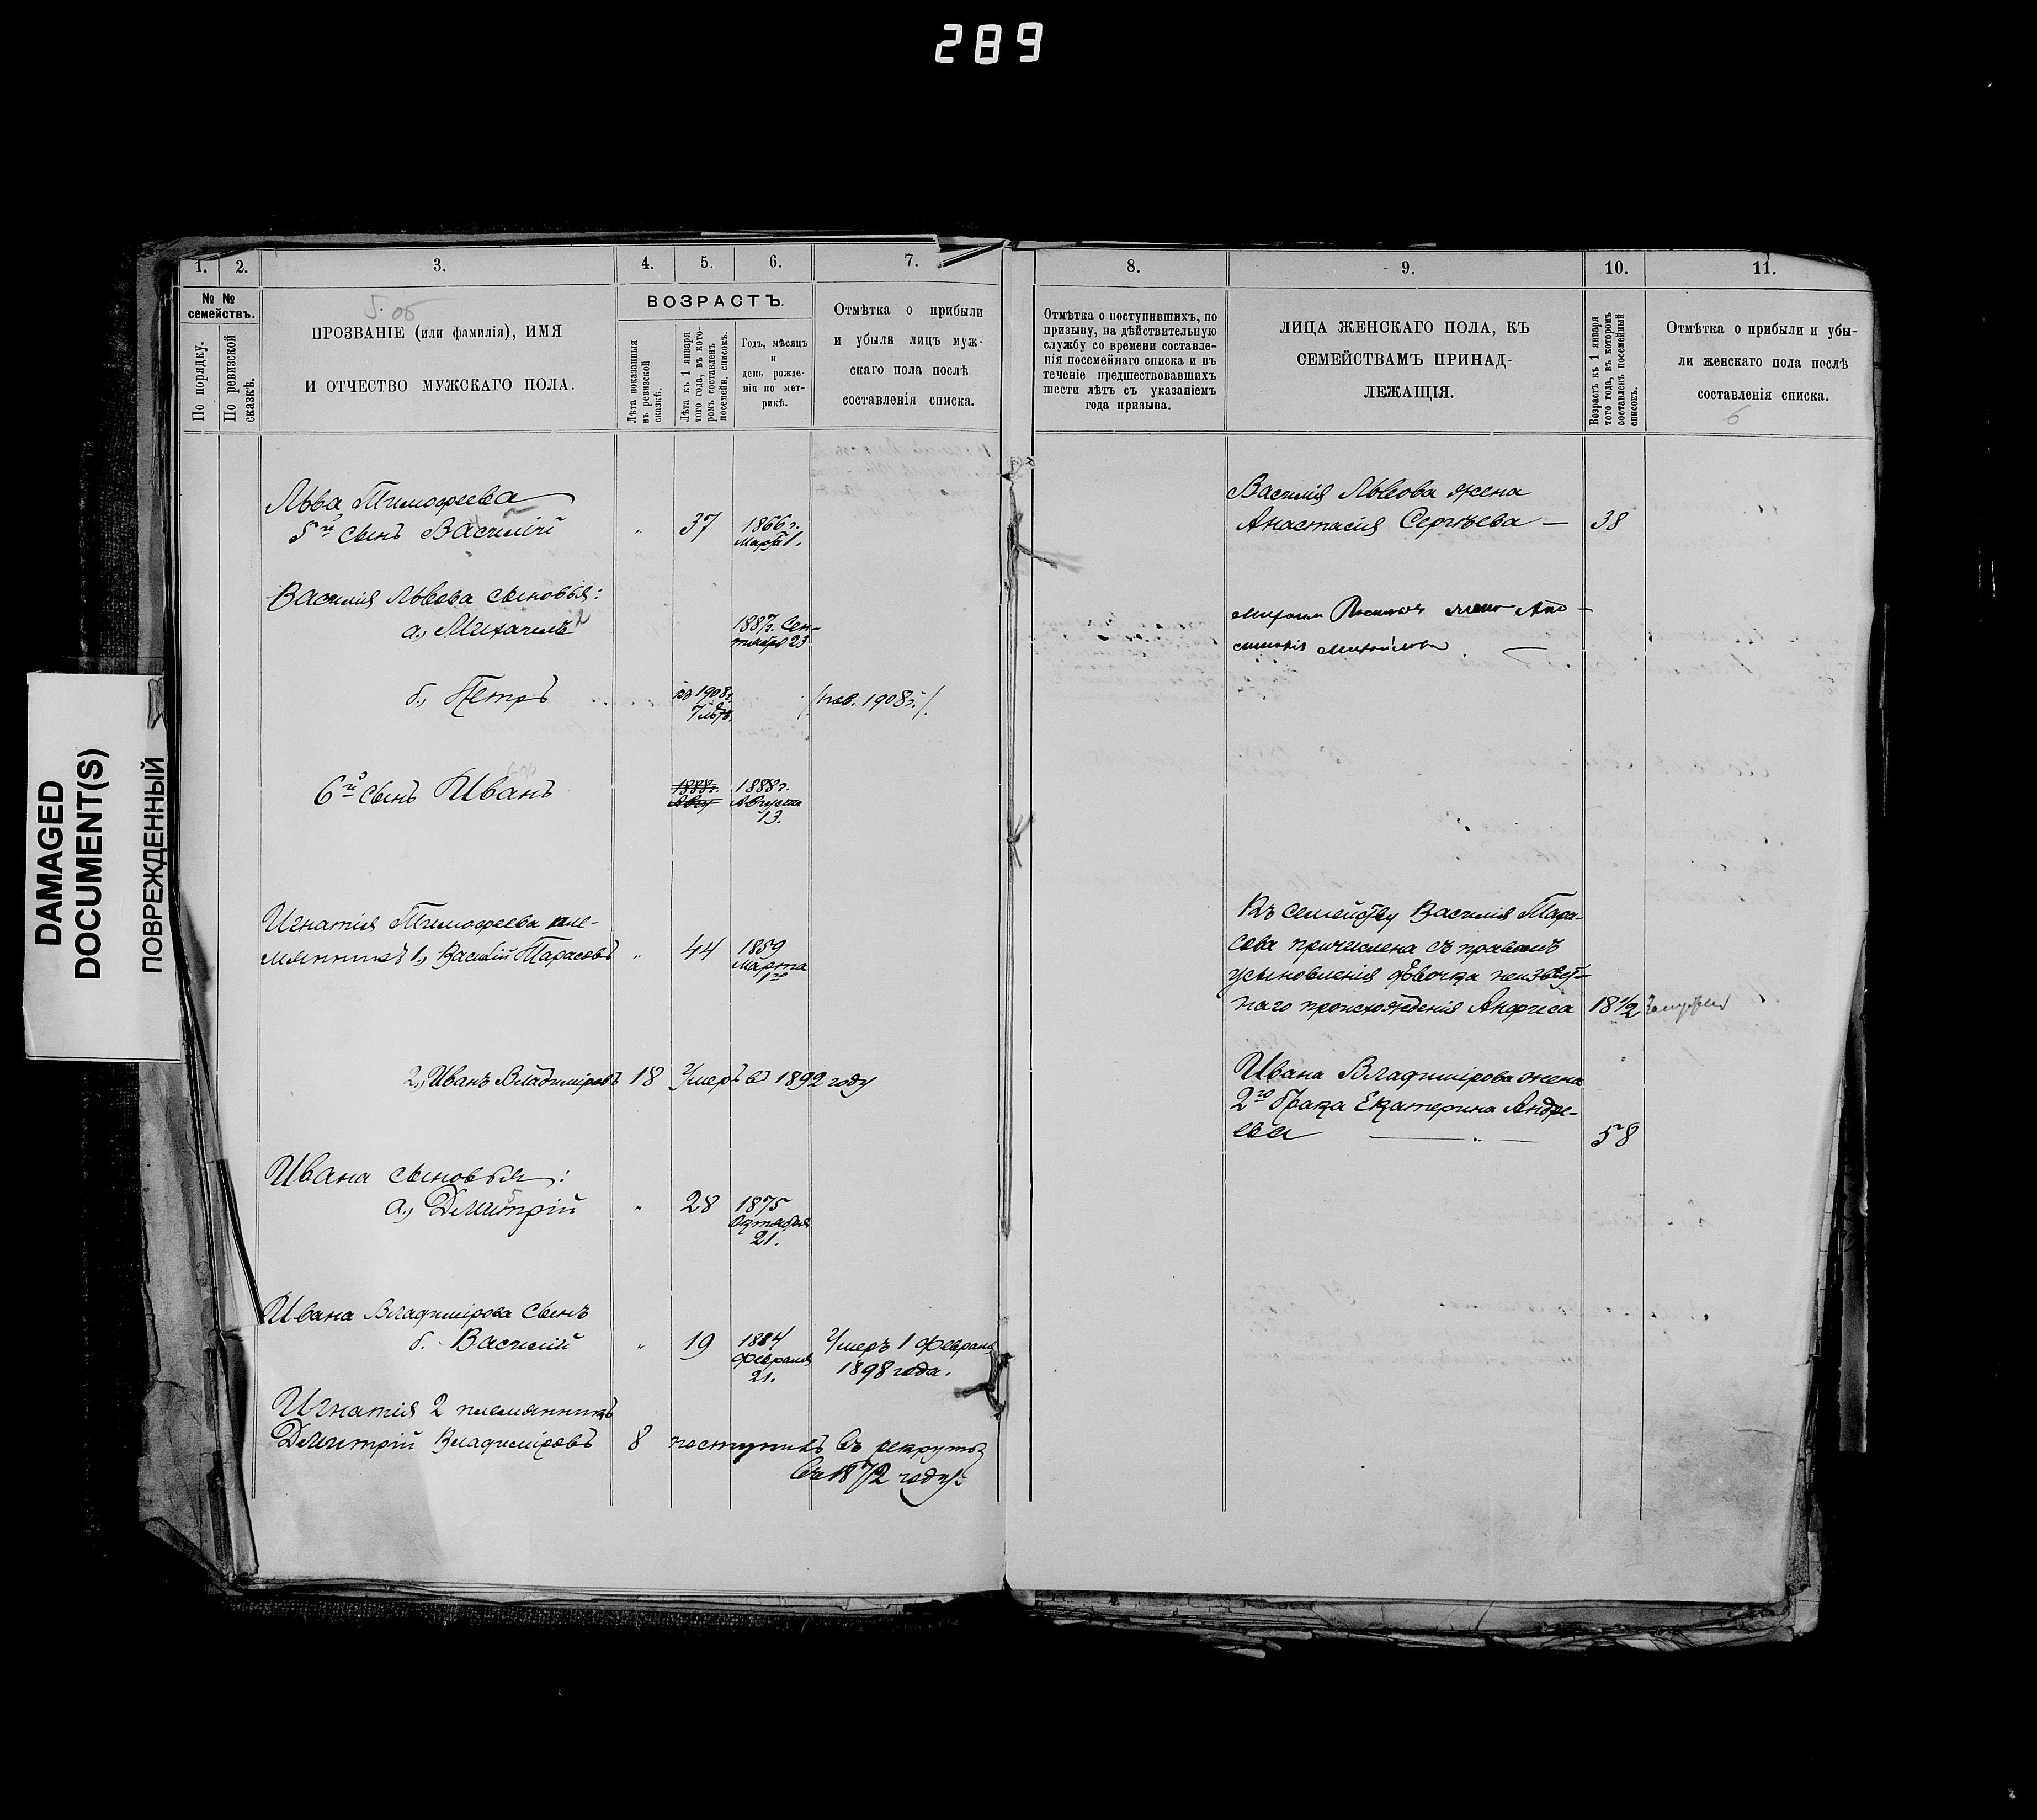 289
DAMAGED
DOCUMENT(S)
ПОВРЕЖДЕННЫЙ
1. 2. 3. 4. 5. 6. 7.
№ №
семействъ.
По порядку.
По ревизской
сказкѣ.
5 об
ПРОЗВАНІЕ (или фамилія), ИМЯ
И ОТЧЕСТВО МУЖСКАГО ПОЛА.
ВОЗРАСТЪ.
Лѣта показанныя
въ ревизской
сказкѣ.
Лѣта къ 1 января
того года, въ кото-
ромъ составленъ
посемейн. списокъ.
Годъ, мѣсяцъ
и
день рожде-
нія по мет-
рикѣ.
Отмѣтка о прибыли
и убыли лицъ муж-
скаго пола послѣ
составленія списка.
Льва Тимофеева
5й сынъ Василій " 37 1866 г.
Марта 1.
Василія Львова сыновья:
а., Михаилъ 2 1887г. Сен-
тября 23
б., Петръ въ 1908г.
7 /пов. 1908 г./.
6й сынъ Иванъ 1888г. 1888г.
Авгу Августа
13.
Игнатія Тимофеева пле-
мянникъ 1., Василій Тарасовъ " 44 1859
Марта
1го
2., Иванъ Владиміровъ 18 Умеръ въ 1892 году
Ивана сыновья:
а., Дмитрій " 28 1875
Октября
21.
Ивана Владимірова сынъ
б. Василій " 19 1884 Умеръ 1 Февраля
Февраля 1898 года.
21.
Игнатія 2 племянникъ
Дмитрій Владиміровъ 8 поступилъ въ рекруты
въ 1872 году.
8. 9. 10. 11.
Отмѣтка о поступившихъ, по
призыву, на дѣйствительную
службу со времени составле-
нія посемейнаго списка и въ
теченіе предшествовавшихъ
шести лѣтъ съ указаніемъ
года призыва.
ЛИЦА ЖЕНСКАГО ПОЛА, КЪ
СЕМЕЙСТВАМЪ ПРИНАД-
ЛЕЖАЩІЯ.
Возрастъ къ 1 января
того года, въ которомъ
составленъ посемейный
списокъ.
Отмѣтка о прибыли и убы-
ли женскаго пола послѣ
составленія списка.
6
Василія Львова жена
Анастасія Сергѣева — 38
Михаила жена Ана-
Михайлова
Къ семейству Василія Тара-
сова причислена съ правомъ
усыновленія дѣвочка неизвѣст-
наго происхожденія Анфиса 18 1/2
Ивана Владимірова жена
2го брака Екатерина Андре-
ева — " — 58